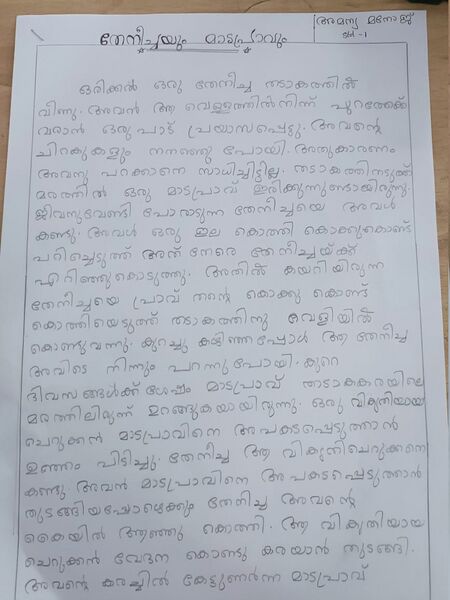 അമന്യ മനോജ്
std - 1
തേനീച്ചയും മാടപ്രാവും
ഒരിക്കൽ ഒരു തേനീച്ച തടാകത്തിൽ
വീണു. അവൻ ആ വെള്ളത്തിൽ നിന്ന് പുറത്തേക്ക്
വരാൻ ഒരുപാട് പ്രയാസപ്പെട്ടു. അവന്റെ
ചിറകുകളും നനഞ്ഞു പോയി. അതുകാരണം
അവനു പറക്കാനെ സാധിച്ചിട്ടില്ല. തടാകത്തിനടുത്ത്
മരത്തിൽ ഒരു മാടപ്രാവ് ഇരിക്കുന്നുണ്ടായിരുന്നു.
ജീവനുവേണ്ടി പോരാടുന്ന തേനീച്ചയെ അവൾ
കണ്ടു. അവൾ ഒരു ഇല കൊത്തി കൊക്കുകൊണ്ട്
പറിച്ചെടുത്ത് അത് നേരെ തേനീച്ചയ്ക്ക്
എറിഞ്ഞുകൊടുത്തു. അതിൽ കയറിയിരുന്ന
തേനീച്ചയെ പ്രാവ് തന്റെ കൊക്കു കൊണ്ട്
കൊത്തിയെടുത്ത് തടാകത്തിനു വെളിയിൽ
കൊണ്ടുവന്നു. കുറച്ചു കഴിഞ്ഞപ്പോൾ ആ തേനീച്ച
അവിടെ നിന്നും പറന്നുപോയി. കുറെ
ദിവസങ്ങൾക്ക് ശേഷം മാടപ്രാവ് തടാകകരയിലെ
മരത്തിലിരുന്ന് ഉറങ്ങുകയായിരുന്നു. ഒരു വികൃതിയായ
ചെറുക്കൻ മാടപ്രാവിനെ അപകടപ്പെടുത്താൻ
ഉന്നം പിടിച്ചു. തേനീച്ച ആ വികൃതിചെറുക്കനെ
കണ്ടു അവൻ മാടപ്രാവിനെ അപകടപ്പെടുത്താൻ
തുടങ്ങിയപ്പോഴേക്കും തേനീച്ച അവന്റെ
കൈയിൽ ആഞ്ഞു കൊത്തി. ആ വികൃതിയായ
ചെറുക്കൻ വേദന കൊണ്ടു കരയാൻ തുടങ്ങി.
അവന്റെ കരച്ചിൽ കേട്ടുണർന്ന മാടപ്രാവ്